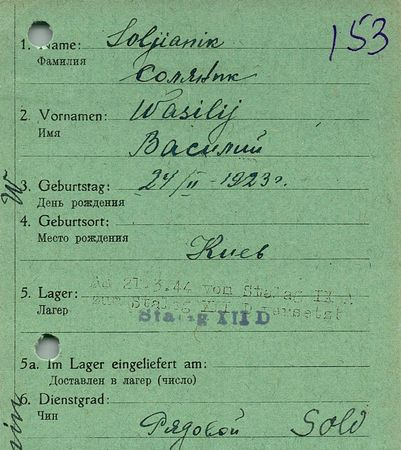 153
1. Name: Soljianik
Фамилия
Соляник
2. Vornamen: Wasilij
Имя
Василий
3. Geburtstag: 24/II-1923г.
День рождения
4. Geburtsort:
Место рождения
Киев
Ad 21.3.44 von Stalag IX A
5. Lager: zum Stalag versetzt
Лагер
Stalag III D
5a. Im Lager eingeliefert am:
Доставлен в лагер (число)
6. Dienstgrad:
Чин
Рядовой Sold